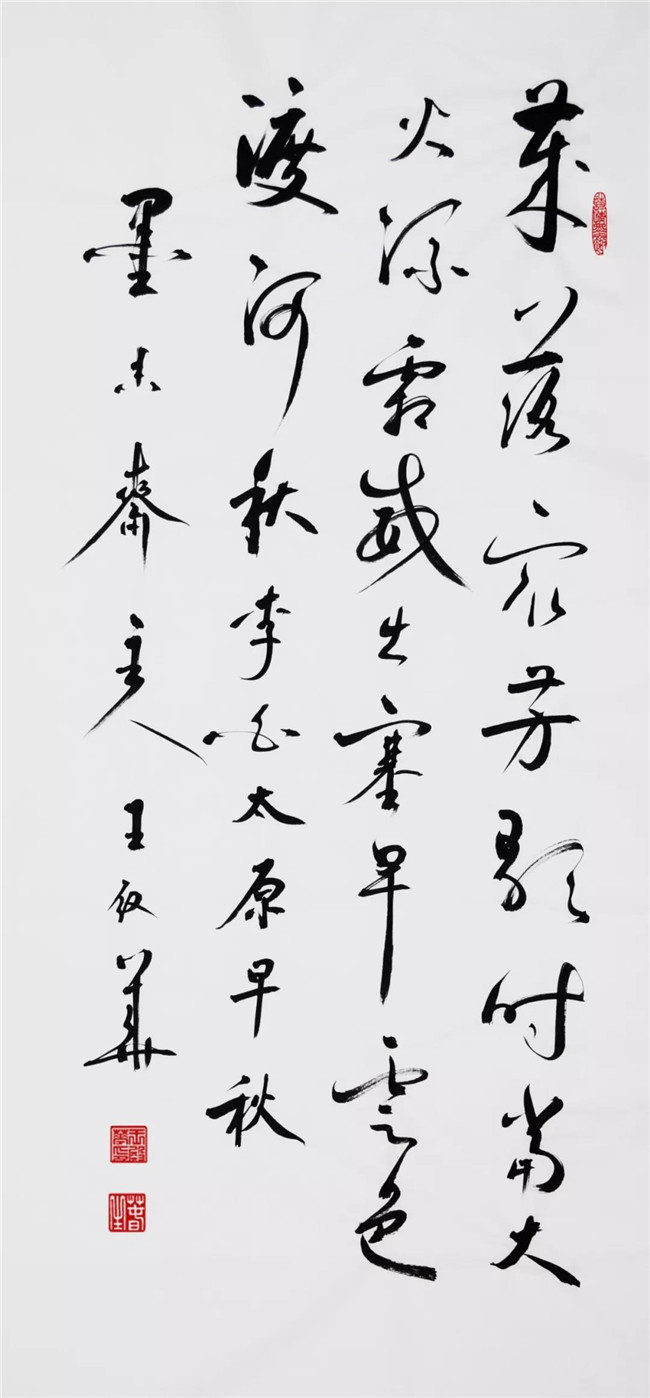 歲落眾芳歇時當大
火流霜威出塞早雲色
渡河秋李白太原早秋
墨齋主人王華